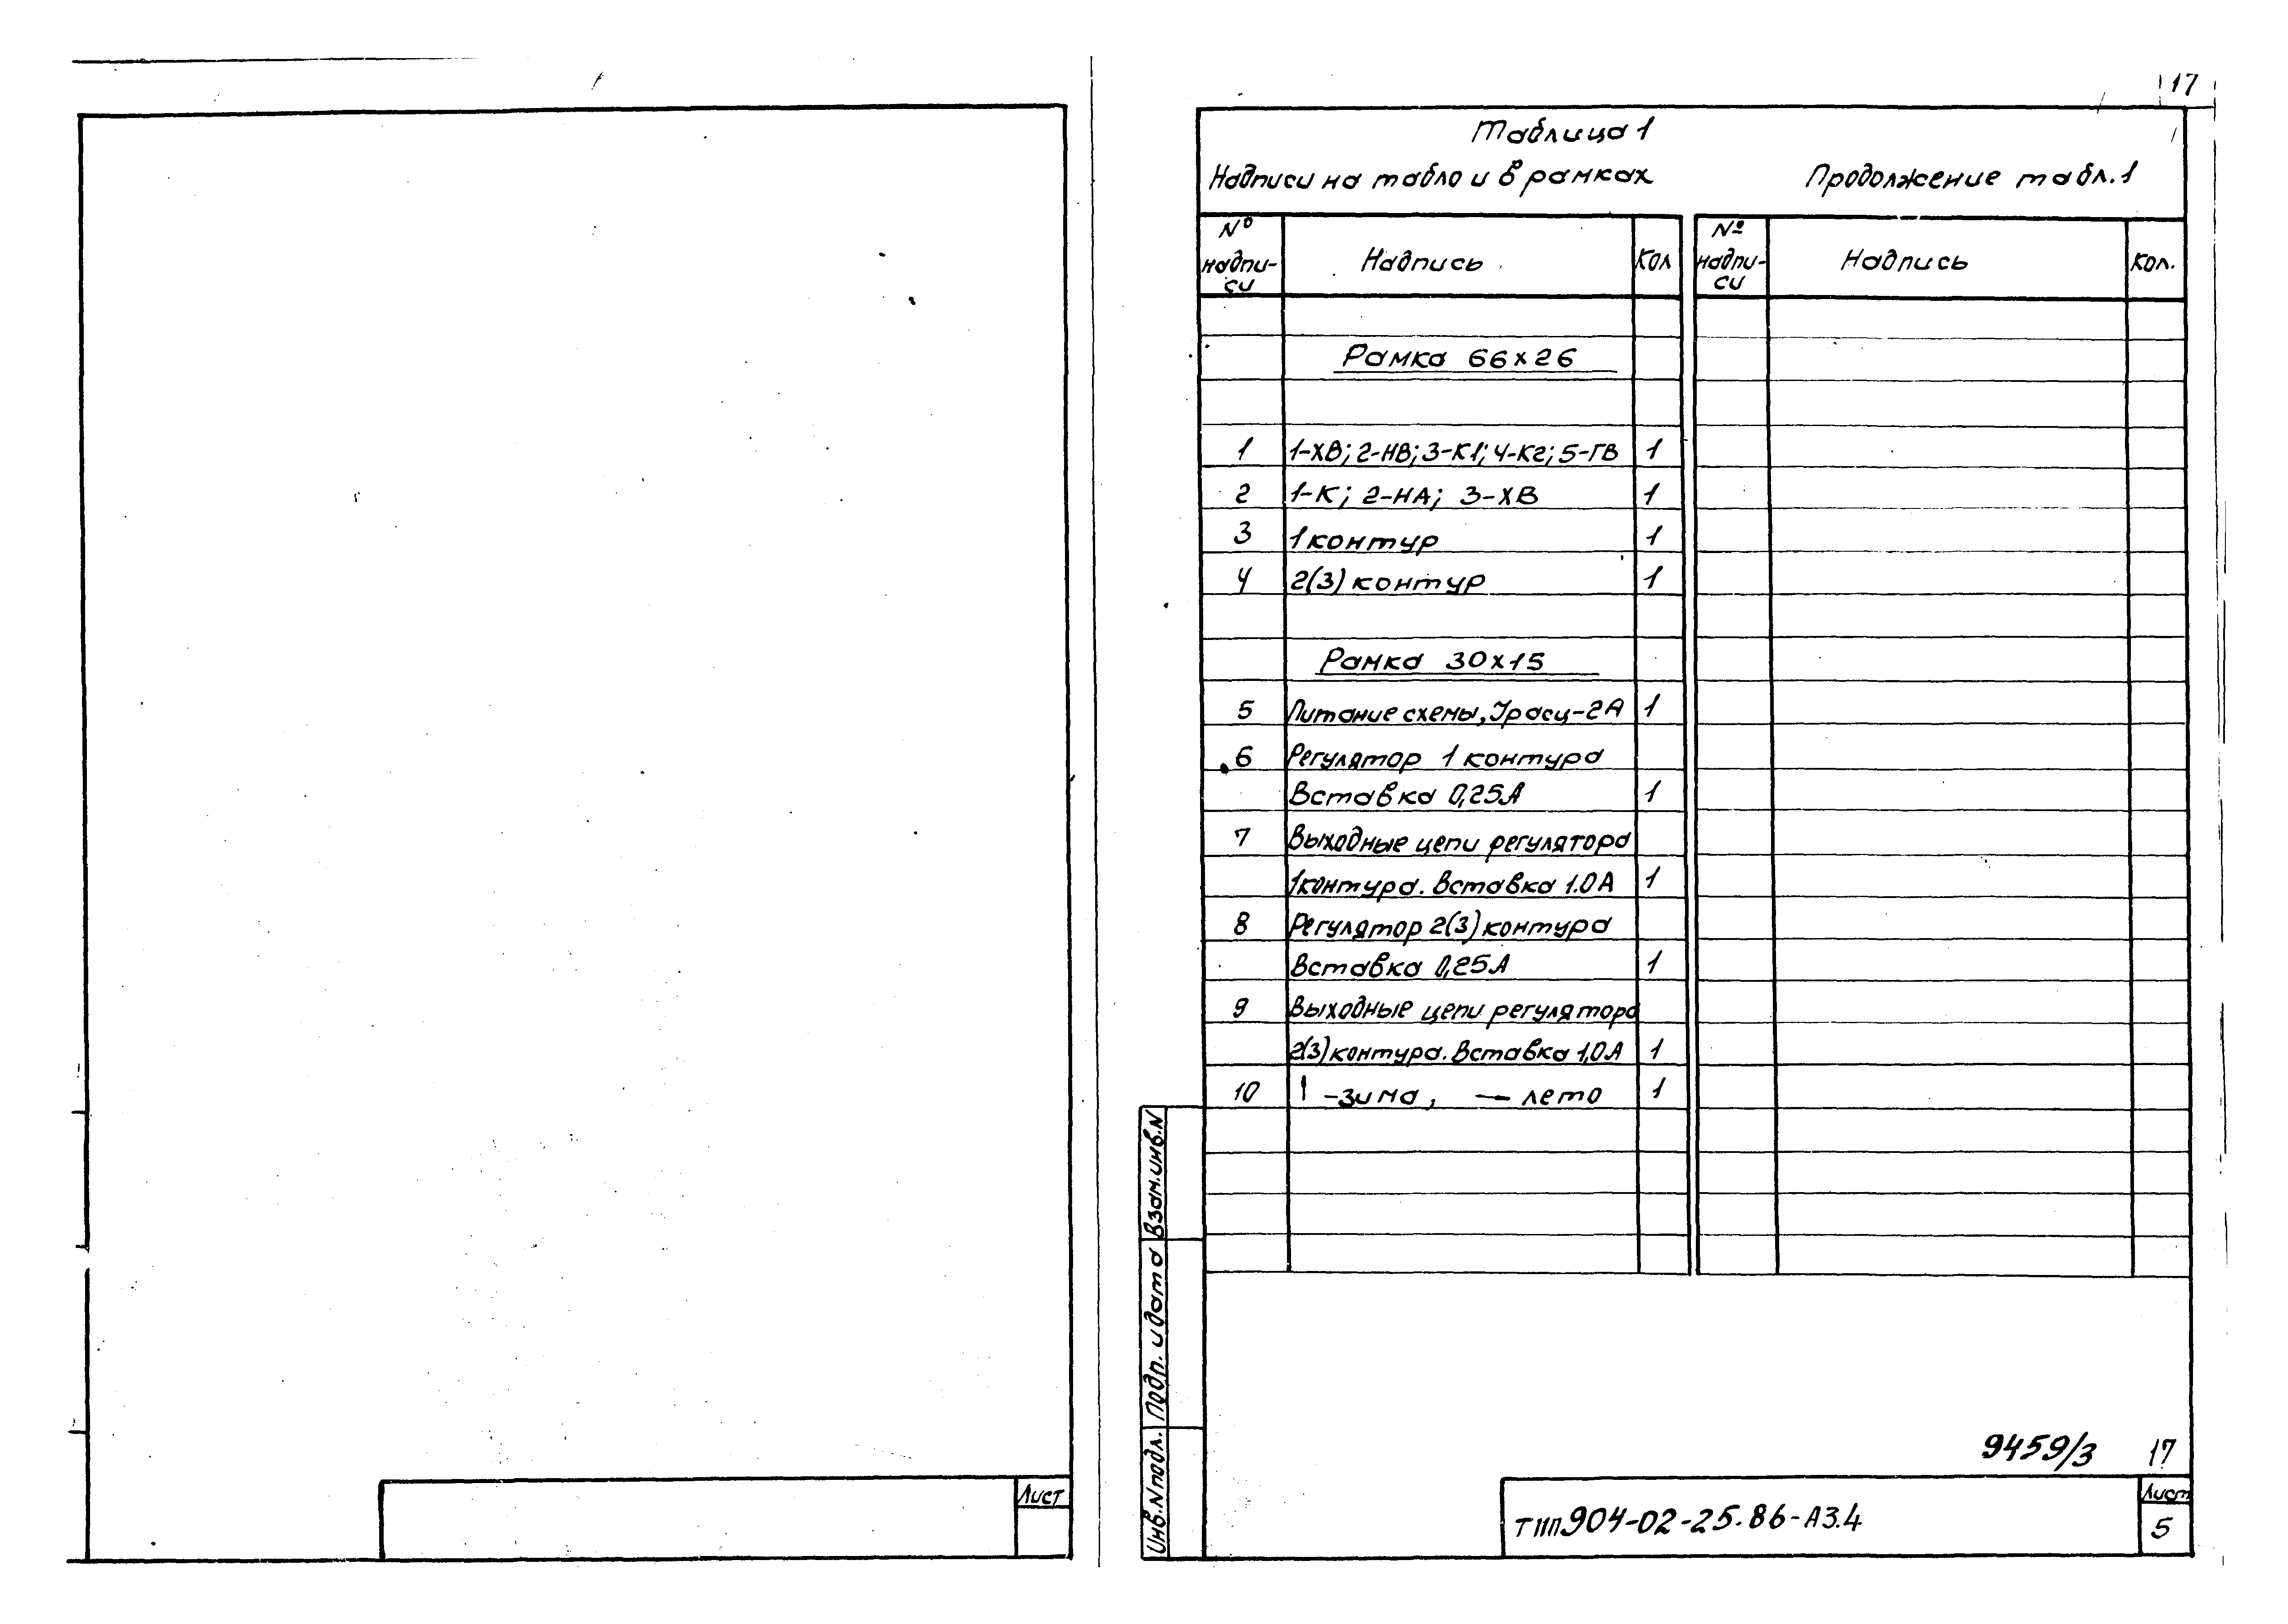 17
Таблица 1
Надписи на табло и в рамках
Продолжение табл. 1
№ надпи-си Надпись Кол
№ надпи-си Надпись Кол.
Рамка 66х26
1 1-ХВ; 2-НВ; 3-К1; 4-К2; 5-ГВ 1
2 1-К; 2-НА; 3-ХВ 1
3 1 контур 1
4 2(3) контур 1
Рамка 30х15
5 Питание схемы, Iрасц-2А 1
6 Регулятор 1 контура
Вставка 0,25А 1
7 Выходные цепи регулятора
1 контура. Вставка 1.0А 1
8 Регулятор 2(3) контура
Вставка 0,25А 1
9 Выходные цепи регулятора
2(3) контура. Вставка 1,0А 1
10 | -зима, — лето 1
Взам. инв. N
Подп. и дата
Инв. N подл.
9459/3 17
Лист
ТМП 904-02-25.86-А3.4
Лист
5